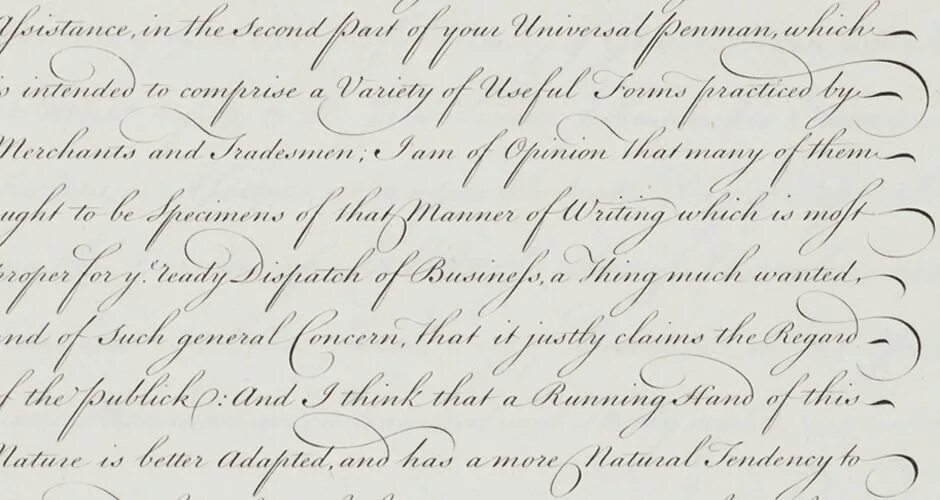 Aſsistance, in the Second Part of your Universal Penman, which
s intended to comprise a Variety of Useful Forms practiced by
Merchants and Tradesmen; I am of Opinion that many of them
ught to be Specimens of that Manner of Writing which is moſt
proper for yᵉ. ready Dispatch of Buſineſs, a Thing much wanted,
and of Such general Concern, that it justly claims the Regard
f the publick: And I think that a Running Hand of this
Nature is better Adapted, and has a more Natural Tendency to